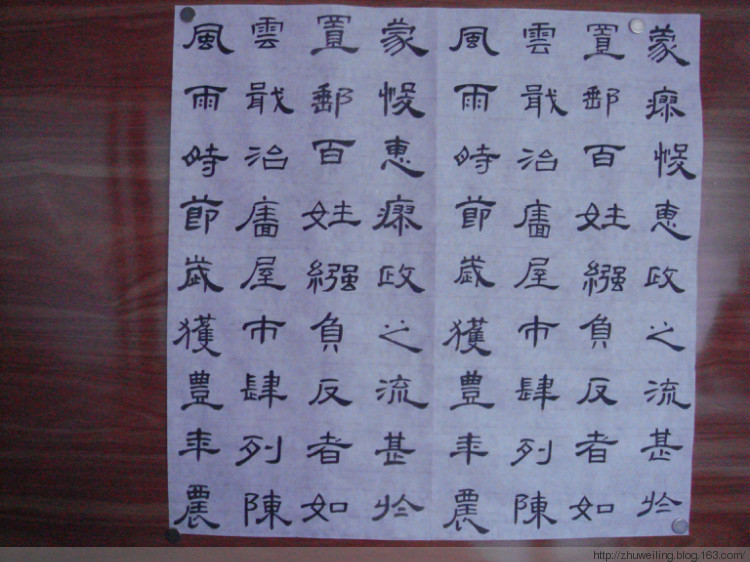 蒙瘳悛惠政之流甚於
置郵百姓繦負反者如
雲戢治廧屋市肆列陳
風雨時節歲獲豊年農
蒙悛惠瘳政之流甚於
置郵百姓繦負反者如
雲戢治廧屋市肆列陳
風雨時節歲獲豊年農
http://zhuweiling.blog.163.com/